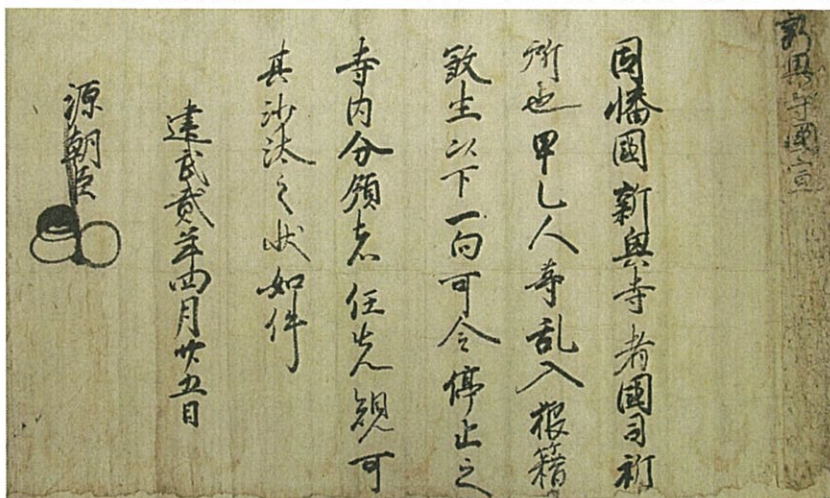 新興寺國宣
因幡國新興寺者國司祈
所也甲乙人等乱入狼籍
殺生以下一向可令停止之
寺内分領者任先規可
其沙汰之状如件
建武貳年四月廿五日
源朝臣